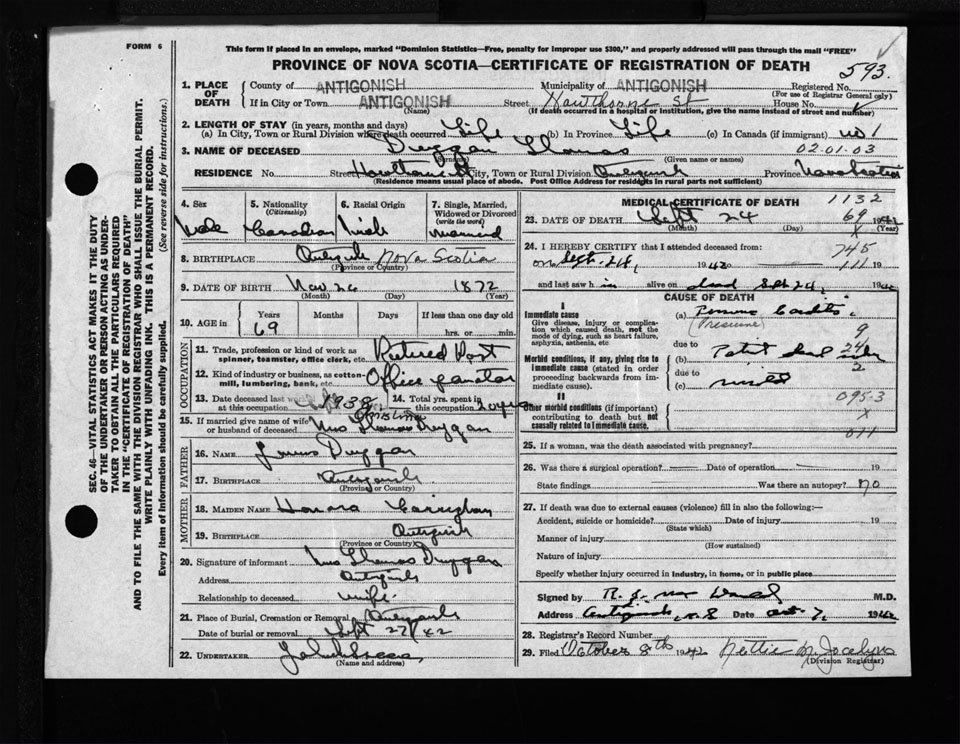 FORM 6
This form if placed in an envelope, marked "Dominion Statistics—Free, penalty for improper use $300," and properly addressed will pass through the mail "FREE"
PROVINCE OF NOVA SCOTIA—CERTIFICATE OF REGISTRATION OF DEATH
593
SEC. 46—VITAL STATISTICS ACT MAKES IT THE DUTY
OF THE UNDERTAKER OR PERSON ACTING AS UNDER-
TAKER TO OBTAIN ALL THE PARTICULARS REQUIRED
IN THE "CERTIFICATE OF REGISTRATION OF DEATH"
AND TO FILE THE SAME WITH THE DIVISION REGISTRAR WHO SHALL ISSUE THE BURIAL PERMIT.
WRITE PLAINLY WITH UNFADING INK. THIS IS A PERMANENT RECORD.
Every item of Information should be carefully supplied. (See reverse side for instructions.)
1. PLACE OF DEATH
County of ANTIGONISH Municipality of ANTIGONISH Registered No.
(For use of Registrar General only)
If in City or Town ANTIGONISH Street Hawthorne St House No.
(Name) (If death occurred in a hospital or institution, give the name instead of street and number)
2. LENGTH OF STAY (in years, months and days)
(a) In City, Town or Rural Division where death occurred Life (b) In Province Life (c) In Canada (if immigrant) no 1
3. NAME OF DECEASED Duggan Thomas 02.01.03
(Surname) (Given name or names)
RESIDENCE No. Street Hawthorne St City, Town or Rural Division Antigonish Province Nova Scotia
(Residence means usual place of abode. Post Office Address for residents in rural parts not sufficient)
4. Sex Male
5. Nationality (Citizenship) Canadian
6. Racial Origin Irish
7. Single, Married, Widowed or Divorced (write the word) Married
8. BIRTHPLACE Antigonish Nova Scotia
(Province or Country)
9. DATE OF BIRTH Nov 26 1872
(Month) (Day) (Year)
10. AGE in Years 69 Months Days If less than one day old
hrs. or min.
OCCUPATION
11. Trade, profession or kind of work as spinner, teamster, office clerk, etc. Retired Post
12. Kind of industry or business, as cotton-mill, lumbering, bank, etc. Office
13. Date deceased last worked at this occupation 1938
14. Total yrs. spent in this occupation 20 yrs
15. If married give name of wife or husband of deceased Mrs Thomas Duggan
FATHER
16. NAME James Duggan
17. BIRTHPLACE Antigonish
(Province or Country)
MOTHER
18. MAIDEN NAME Honora
19. BIRTHPLACE Antigonish
(Province or Country)
20. Signature of informant Mrs Thomas Duggan
Address Antigonish
Relationship to deceased wife
21. Place of Burial, Cremation or Removal Antigonish
Date of burial or removal Sept 27/42
22. UNDERTAKER
(Name and address)
MEDICAL CERTIFICATE OF DEATH 1132
23. DATE OF DEATH Sept 24 69 1942
(Month) (Day) (Year)
24. I HEREBY CERTIFY that I attended deceased from: 745
on Sept. 24, 1942 111 19
and last saw h im alive on dead Sept 24, 1942
CAUSE OF DEATH
I
Immediate cause
Give disease, injury or complication which caused death, not the mode of dying, such as heart failure, asphyxia, asthenia, etc
(a)
9
due to
24
Morbid conditions, if any, giving rise to immediate cause (stated in order proceeding backwards from immediate cause)
(b)
2
due to
(c)
095-3
II
Other morbid conditions (if important) contributing to death but not causally related to immediate cause.
X
011
25. If a woman, was the death associated with pregnancy?
26. Was there a surgical operation? Date of operation 19
State findings Was there an autopsy? no
27. If death was due to external causes (violence) fill in also the following:—
Accident, suicide or homicide? Date of injury 19
(State which)
Manner of injury
(How sustained)
Nature of injury
Specify whether injury occurred in industry, in home, or in public place
Signed by M.D.
Address Antigonish N.S Date Oct 7, 1942
28. Registrar's Record Number
29. Filed October 8th 1942 Nettie M. Jocelyn
(Division Registrar)